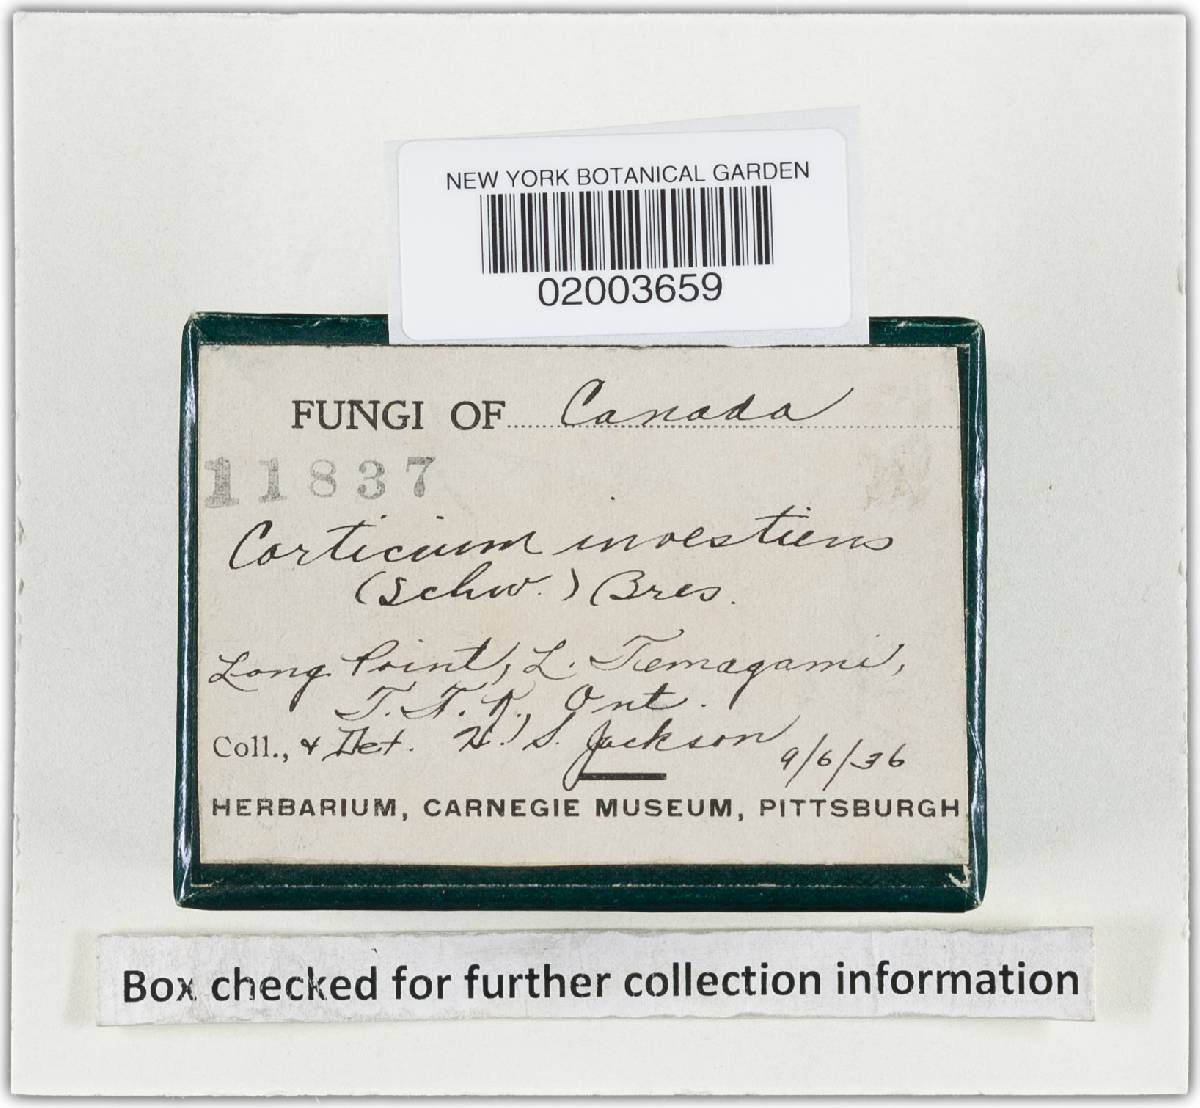 NEW YORK BOTANICAL GARDEN
02003659
FUNGI OF Canada
11837
Corticium investiens
(Schw.) Bres.
Long Point, L. Temagami,
T.F.R., Ont.
Coll., & Det. H. S. Jackson 9/6/36
HERBARIUM, CARNEGIE MUSEUM, PITTSBURGH
Box checked for further collection information